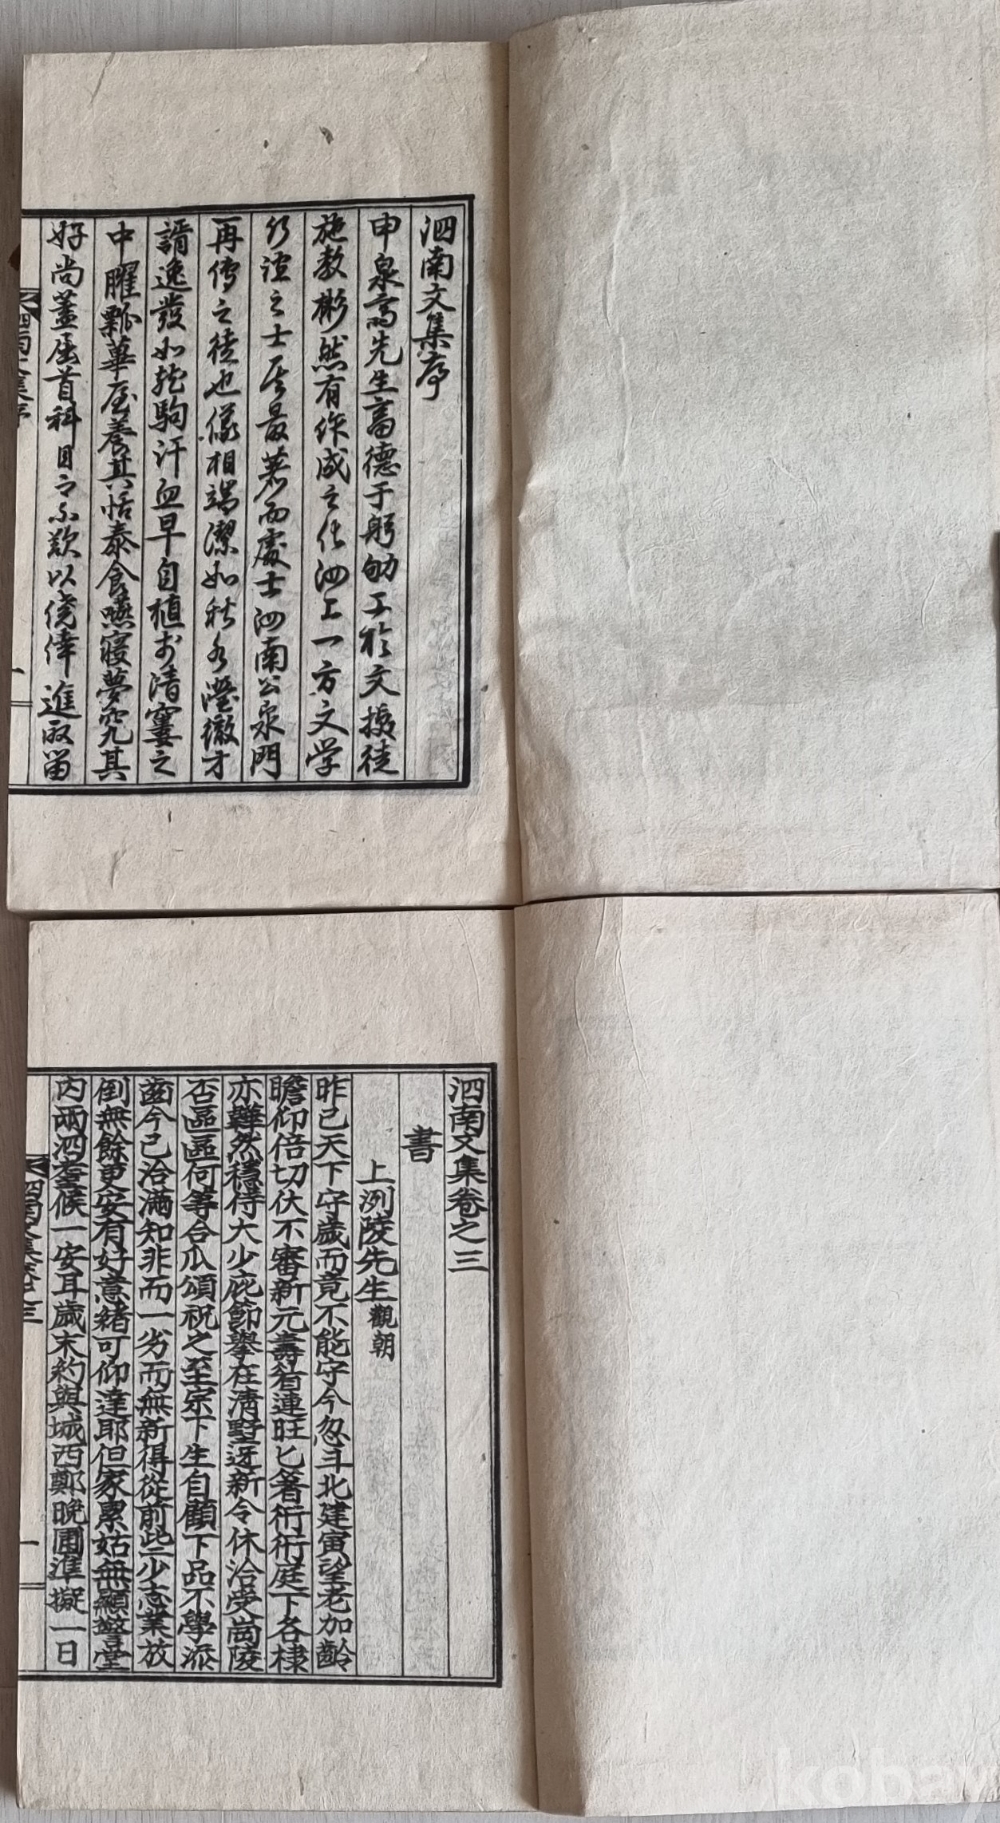 泗南文集序
申泉高先生畜德于躬劬工於文授徒
施教彬然有作成之化泗上一方文学
行誼之士居最著而處士泗南公泉門
再傳之徒也儀相端潔如秋水瀅徹才
諝逸發如龍駒汗血早自植於清寠之
中臞瓢華屋養其恬泰食嚥寢夢究其
好尚蓋屈首科目而不欲以僥倖進取留
泗南文集序
一
泗南文集卷之三
書
上洌陵先生觀朝
昨已天下守歲而竟不能守今忽斗北建寅望老加齡
瞻仰倍切伏不審新元壽省連旺匕箸衎衎庭下各棣
亦韡然穩侍大少庇節擧在淸墅迓新令休洽受崗陵
否區區何等合瓜頌祝之至宗下生自顧下品不學派
齒今已洽滿知非而一劣而無新得從前些少志業放
倒無餘更安有好意緖可仰達耶但家累姑無顯警堂
內兩泗耋候一安耳歲末約與城西鄭晩圃準擬一日
泗南文集卷之三
一
kobay